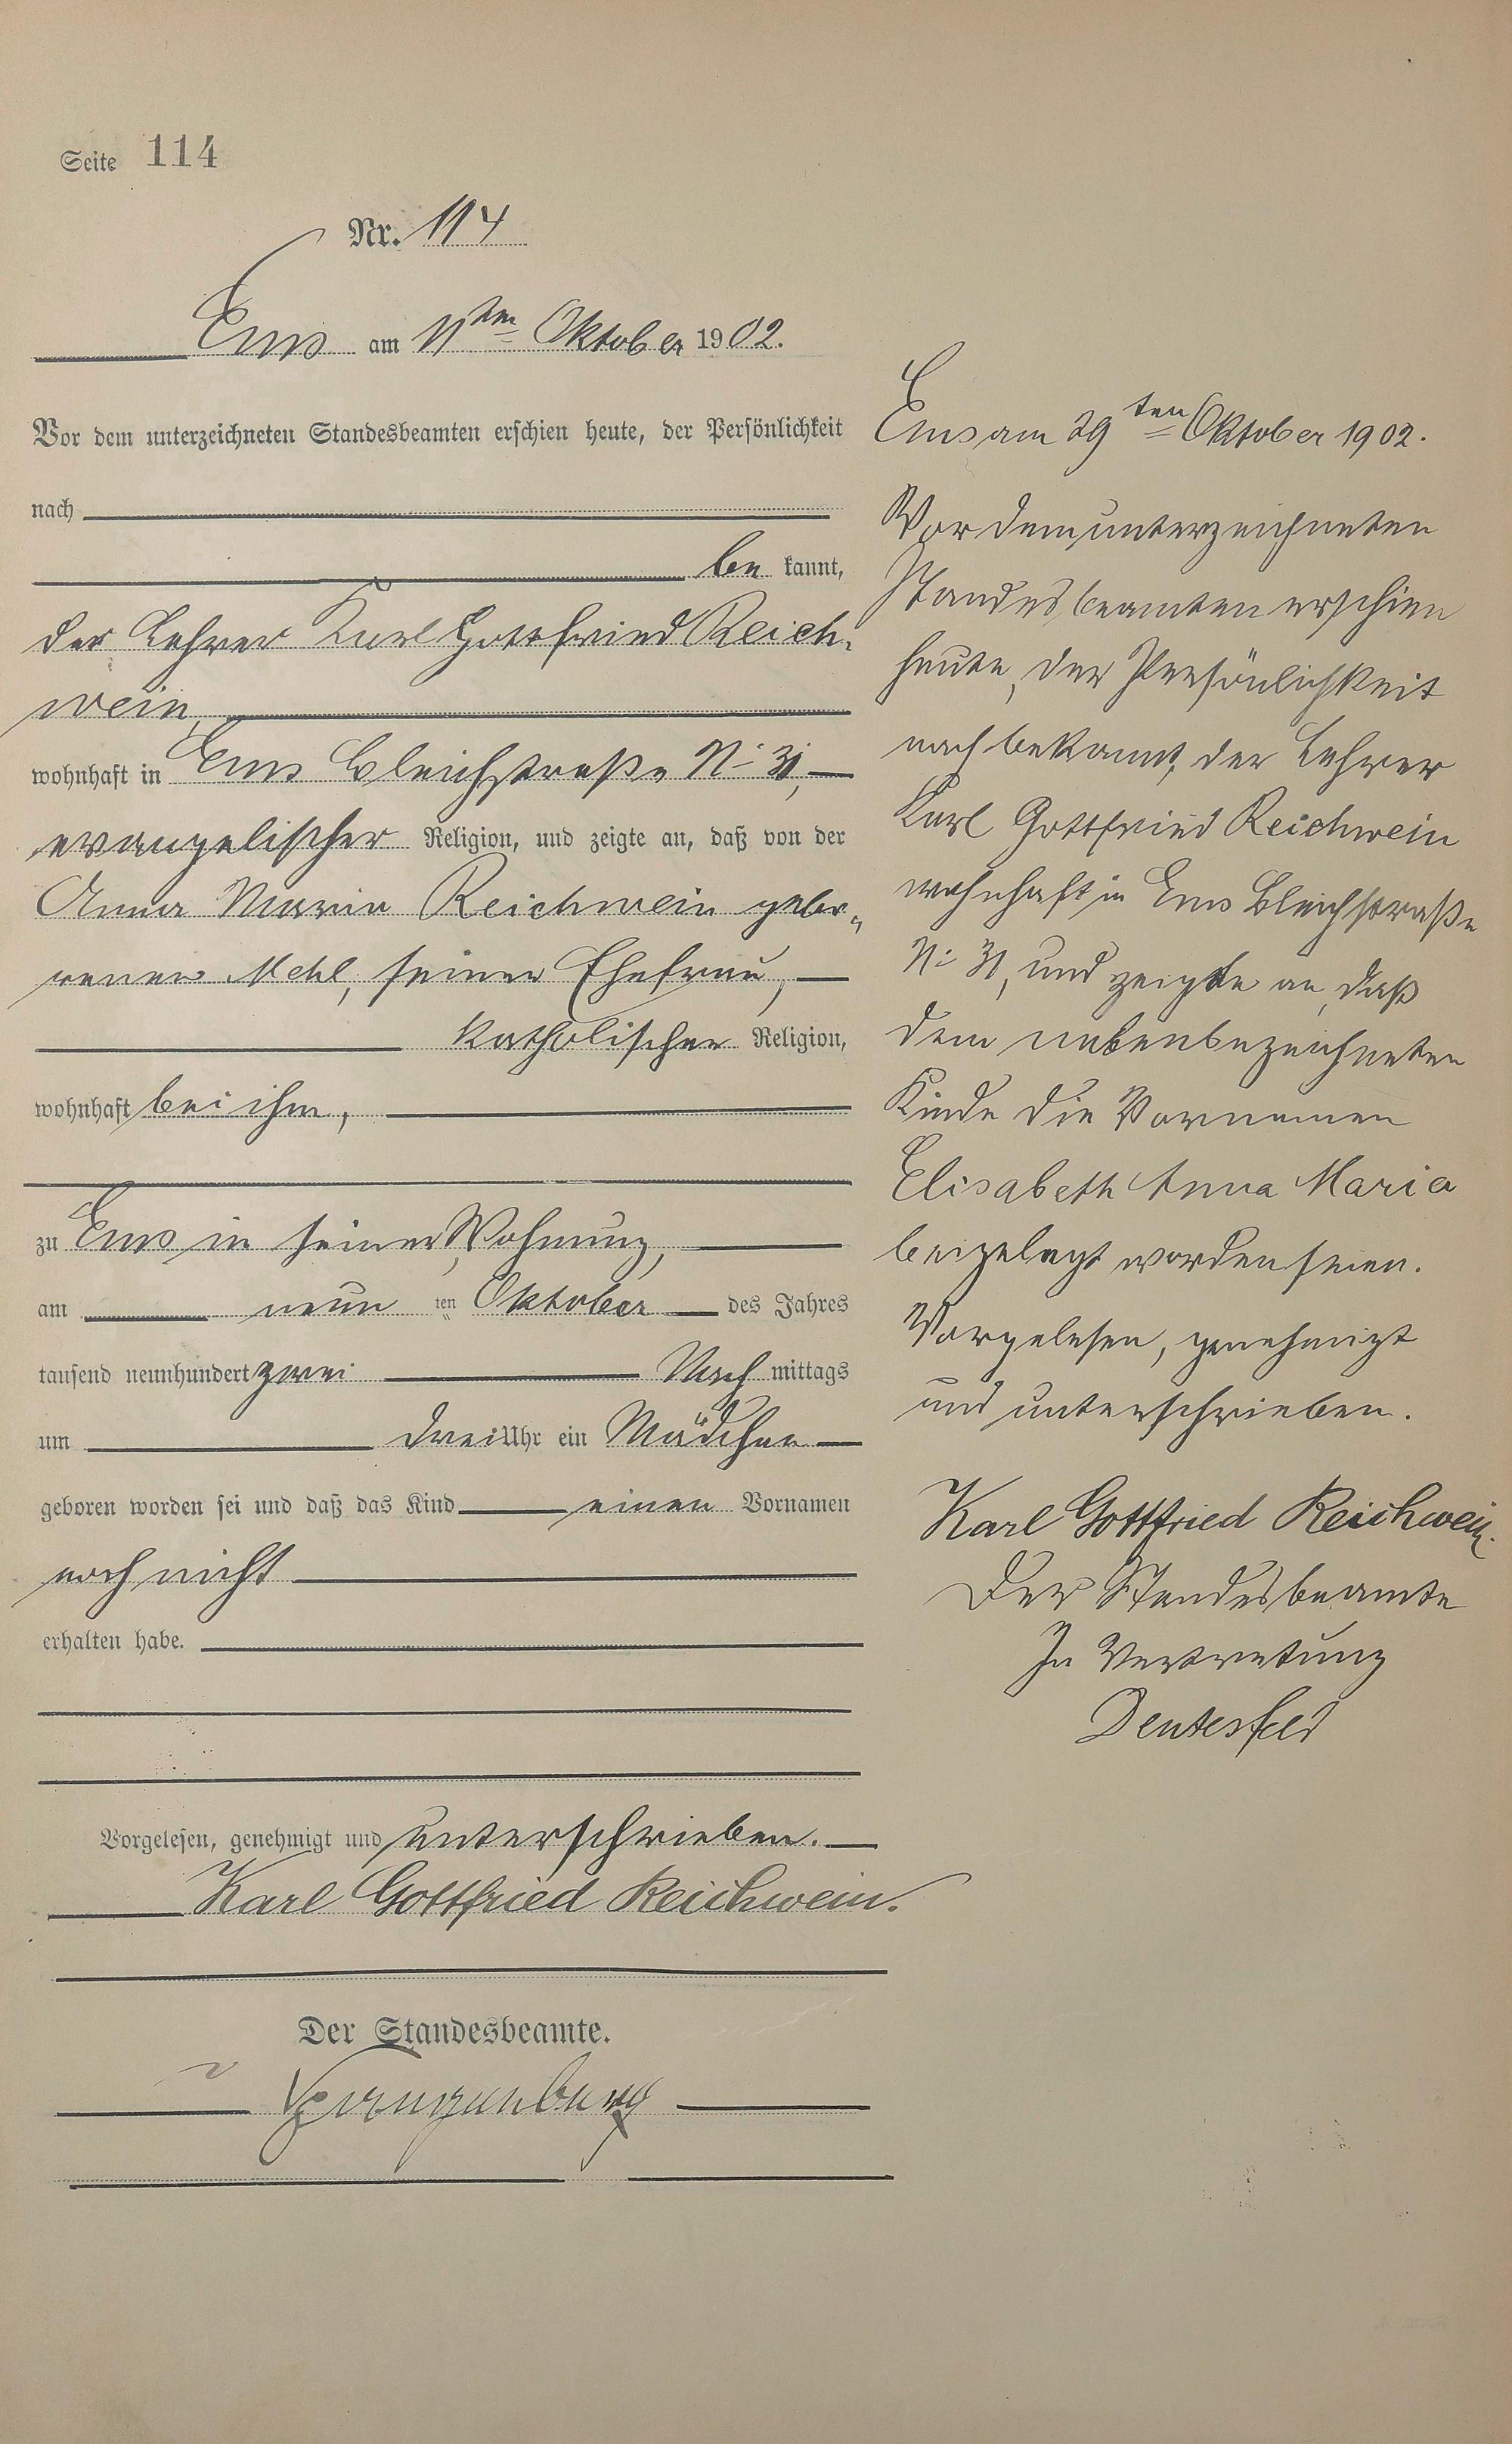 Seite 114
Nr. 114
Ems am 11ten Oktober 1902.
Vor dem unterzeichneten Standesbeamten erschien heute, der Persönlichkeit
nach
be kannt,
der Lehrer Karl Gottfried Reich-
wein,
wohnhaft in Ems Bleichstraße No 31,
evangelischer Religion, und zeigte an, daß von der
Anna Maria Reichwein gebo-
renen Mehl, seiner Ehefrau,
katholischer Religion,
wohnhaft bei ihm,
zu Ems in seiner Wohnung,
am neun ten Oktober des Jahres
tausend neunhundert zwei Nach mittags
um drei Uhr ein Mädchen
geboren worden sei und daß das Kind einen Vornamen
noch nicht
erhalten habe.
Vorgelesen, genehmigt und unterschrieben.
Karl Gottfried Reichwein.
Der Standesbeamte.
Spangenberg
Ems am 29ten Oktober 1902.
Vor dem unterzeichneten
Standesbeamten erschien
heute, der Persönlichkeit
nach bekannt, der Lehrer
Karl Gottfried Reichwein
wohnhaft in Ems Bleichstraße
No 31, und zeigte an, daß
dem nebenbezeichneten
Kinde die Vornamen
Elisabeth Anna Maria
beigelegt worden seien.
Vorgelesen, genehmigt
und unterschrieben.
Karl Gottfried Reichwein.
Der Standesbeamte
In Vertretung